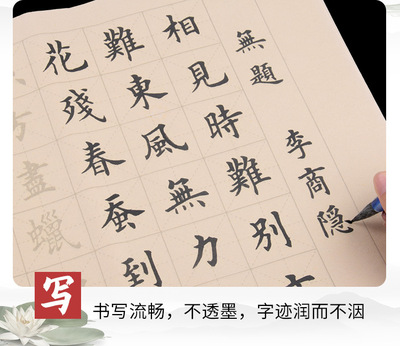 無題
李商隐
相見時難別
難東風無力
花殘春蚕到
方盡蠟
写
书写流畅，不透墨，字迹润而不洇